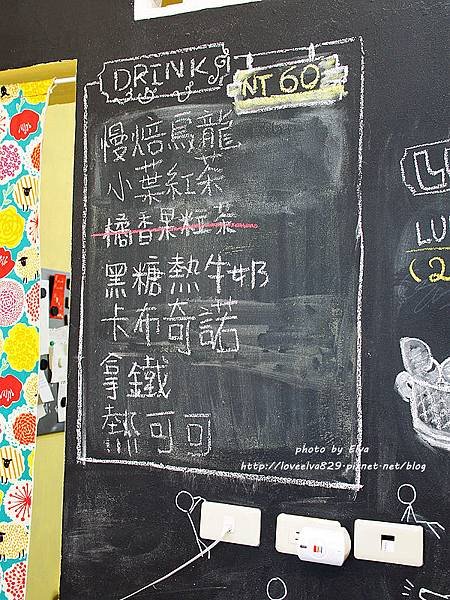 DRINK
NT 60
慢焙烏龍
小葉紅茶
橘香果粒茶
黑糖熱牛奶
卡布奇諾
拿鐵
熱可可
LU
(2
photo by Elva
http://loveelva829.pixnet.net/blog